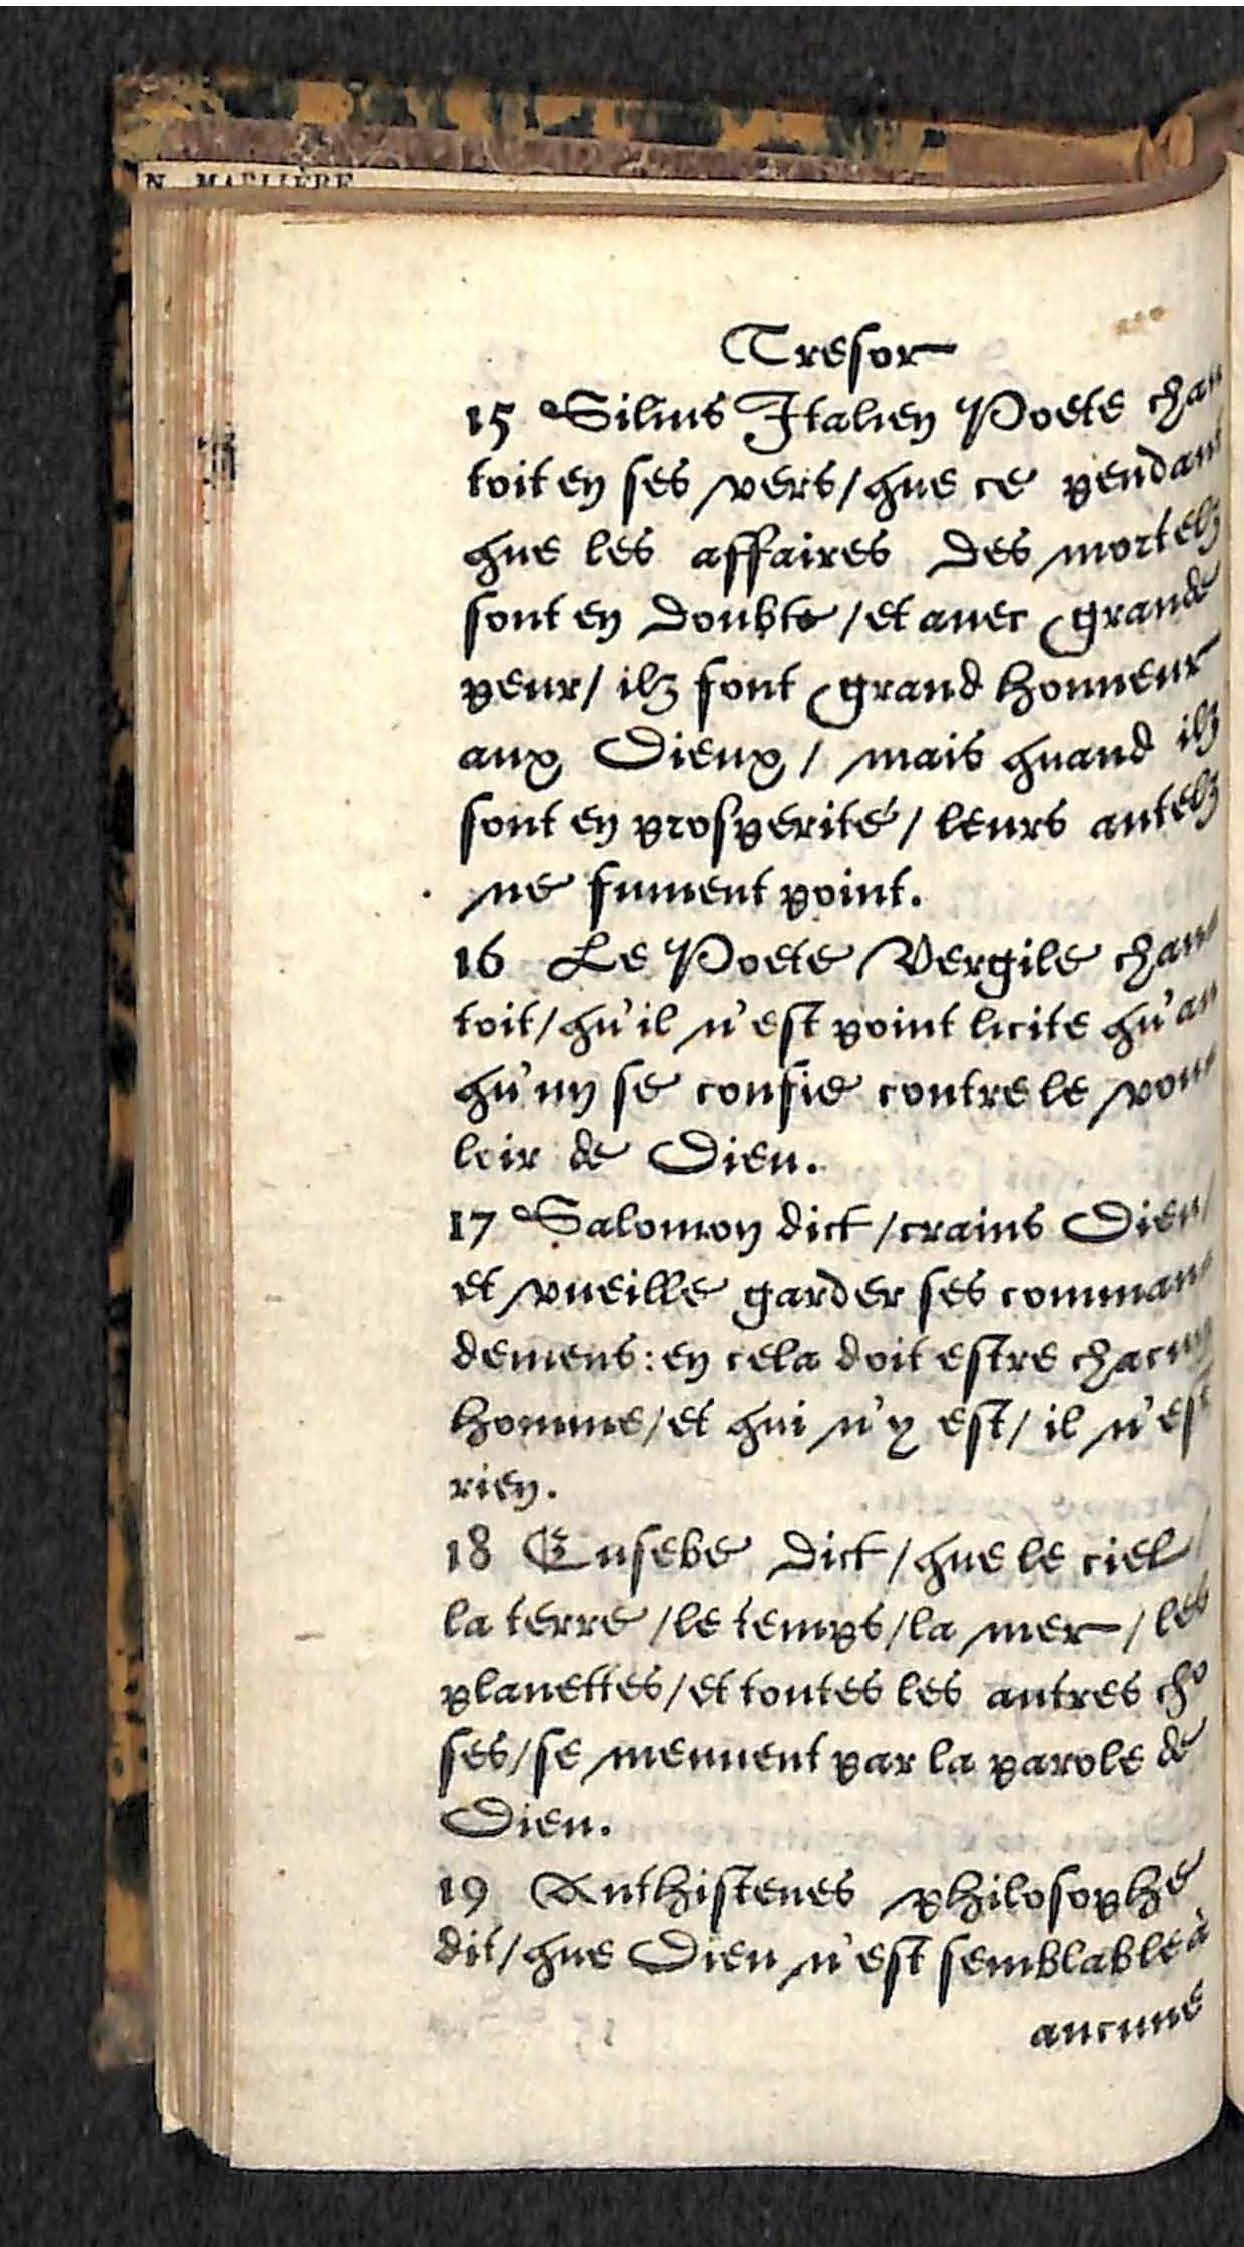 N. MARLIÈRE
Tresor
15 Silius Italien Poete chan
toit en ses vers/que ce pendant
que les affaires des mortelz
sont en doubte/et avec grande
peur/ilz font grand honneur
aux Dieux/mais quand ilz
sont en prosperité/leurs autelz
ne fument point.
16 Le Poete Vergile chan
toit/qu'il n'est point licite qu'au
qu'un se confie contre le vou
loir de Dieu.
17 Salomon dict/crains Dieu/
et vueille garder ses comman
demens: en cela doit estre chacun
homme/et qui n'y est/il n'est
rien.
18 Eusebe dict/que le ciel/
la terre/le temps/la mer/les
planettes/et toutes les autres cho
ses/se meuvent par la parole de
Dieu.
19 Anthistenes philosophe
dit/que Dieu n'est semblable à
aucune